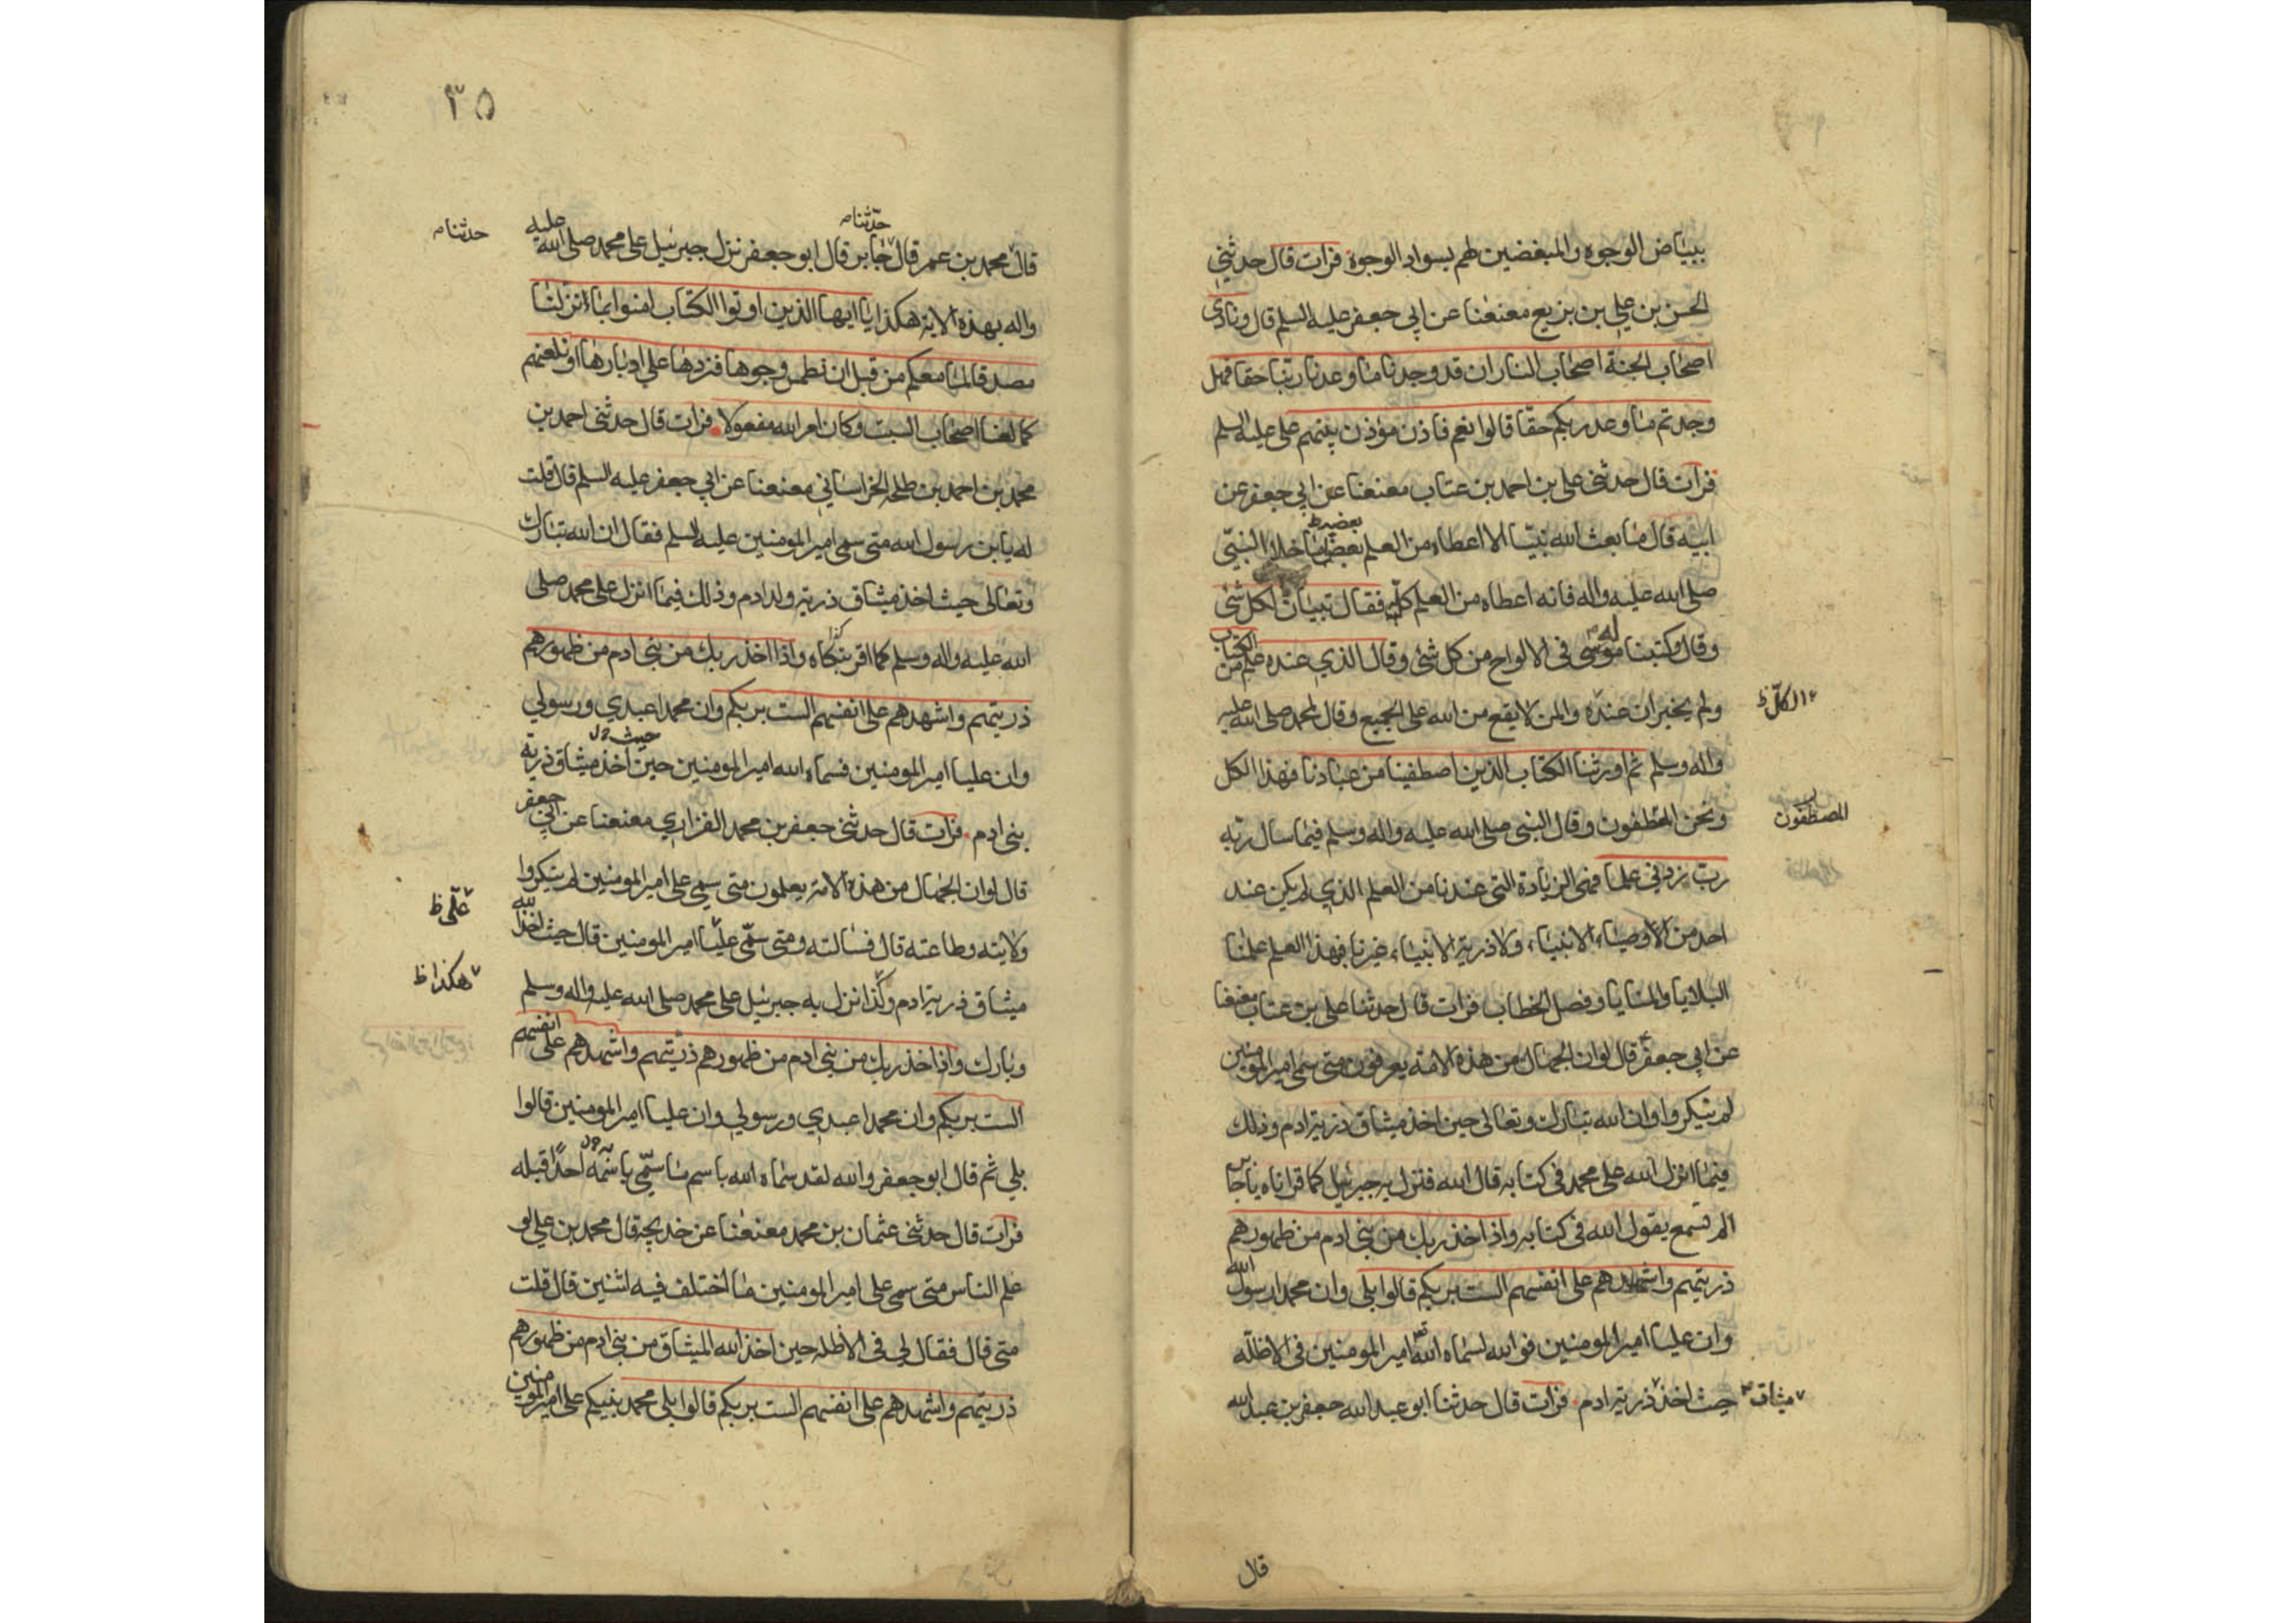 ببياض الوجوه والمبغضين لهم بسواد الوجوة فرات قال حدثني
الحسن بن علي بن بزيع معنعنا عن ابي جعفر عليه السلم قال ونادى
اصحاب الجنة اصحاب النار ان قد وجدنا ما وعدنا ربنا حقا فهل
وجدتم ما وعد ربكم حقا قالوا نعم فاذن مؤذن بينهم علي عليه السلم
فرات قال حدثني علي بن احمد بن عتاب معنعنا عن ابي جعفر عن
بعضه ظ
ابيه قال ما بعث الله نبيا الا اعطاه من العلم بعضا ما خلا النبي
صلى الله عليه واله فانه اعطاه من العلم كله فقال تبيانا لكل شئ
وقال وكتبنا له موسى في الالواح من كل شئ وقال الذي عنده علم من الكتاب
ولم يخبر ان عنده والمن لا يقع من الله على الجميع وقال لمحمد صلى الله عليه
الكل ظ
واله وسلم ثم اورثنا الكتاب الذين اصطفينا من عبادنا فهذا الكل
ونحن المطفون وقال النبي صلى الله عليه واله وسلم فيما سال ربه
المصطفون
رب زدني علما فهي الزيادة التي عندنا من العلم الذي لم يكن عند
احد من الاوصياء الانبياء ولا ذرية الانبياء غيرنا فهذا العلم علمنا
البلايا والمنايا وفصل الخطاب فرات قال حدثنا علي بن عتاب معنعنا
عن ابي جعفر قال لو ان الجهال من هذه الامة يعرفون متى سمى امير المومنين
لم ينكروا وان الله تبارك وتعالى حين اخذ ميثاق ذرية ادم وذلك
فيما انزل الله على محمد في كتابه قال الله فنزل به جبرئيل كما قراناه يا جابر
الم تسمع يقول الله في كتابه واذ اخذ ربك من بني ادم من ظهورهم
ذريتهم واشهدهم على انفسهم الست بربكم قالوا بلى وان محمدا رسول الله
وان عليا امير المومنين فو الله لسماه الله امير المومنين في الاظلة
حيث اخذ ذرية ادم فرات قال حدثنا ابو عبد الله جعفر بن عبد الله
ميثاق
قال
٣٥
حدثنا
حدثنا
قال محمد بن عمر قال جابر قال ابو جعفر نزل جبرئيل على محمد صلى الله عليه
واله بهذه الاية هكذا يا ايها الذين اوتوا الكتاب امنوا بما انزلنا
مصدقا لما معكم من قبل ان نطمس وجوها فنردها على ادبارها او نلعنهم
كما لعنا اصحاب السبت وكان امر الله مفعولا فرات قال حدثني احمد بن
محمد بن احمد بن طلحه الخراساني معنعنا عن ابي جعفر عليه السلم قال قلت
له يا بن رسول الله متى سمى امير المومنين عليه السلم فقال ان الله تبارك
وتعالى حيث اخذ ميثاق ذرية ولد ادم وذلك فيما انزل على محمد صلى
الله عليه واله وسلم كما اقر واذ اخذ ربك من بني ادم من ظهورهم
ذريتهم واشهدهم على انفسهم الست بربكم وان محمدا عبدي ورسولي
حيث
وان عليا امير المومنين فسماه الله امير المومنين حين اخذ ميثاق ذرية
بني ادم فرات قال حدثني جعفر بن محمد الفزاري معنعنا عن ابي جعفر
قال لو ان الجهال من هذه الامة يعلمون متى سمي علي امير المومنين لم ينكروا
علي ظ
ولايته وطاعته قال فسالته ومتى سمي عليا امير المومنين قال حيث اخذ الله
هكذا ظ
ميثاق ذرية ادم وكذا نزل به جبرئيل على محمد صلى الله عليه واله وسلم
وبارك واذ اخذ ربك من بني ادم من ظهورهم ذريتهم واشهدهم على انفسهم
الست بربكم وان محمدا عبدي ورسولي وان عليا امير المومنين قالوا
بلى ثم قال ابو جعفر والله لقد سماه الله باسم ما سمي باسمه احدا قبله
فرات قال حدثني عثمان بن محمد معنعنا عن خديجة قال محمد بن علي لو
علم الناس متى سمى علي امير المومنين ما اختلف فيه اثنين قال قلت
متى قال فقال لي في الاظله حين اخذ الله الميثاق من بني ادم من ظهورهم
ذريتهم واشهدهم على انفسهم الست بربكم قالوا بلى محمد نبيكم علي امير المومنين